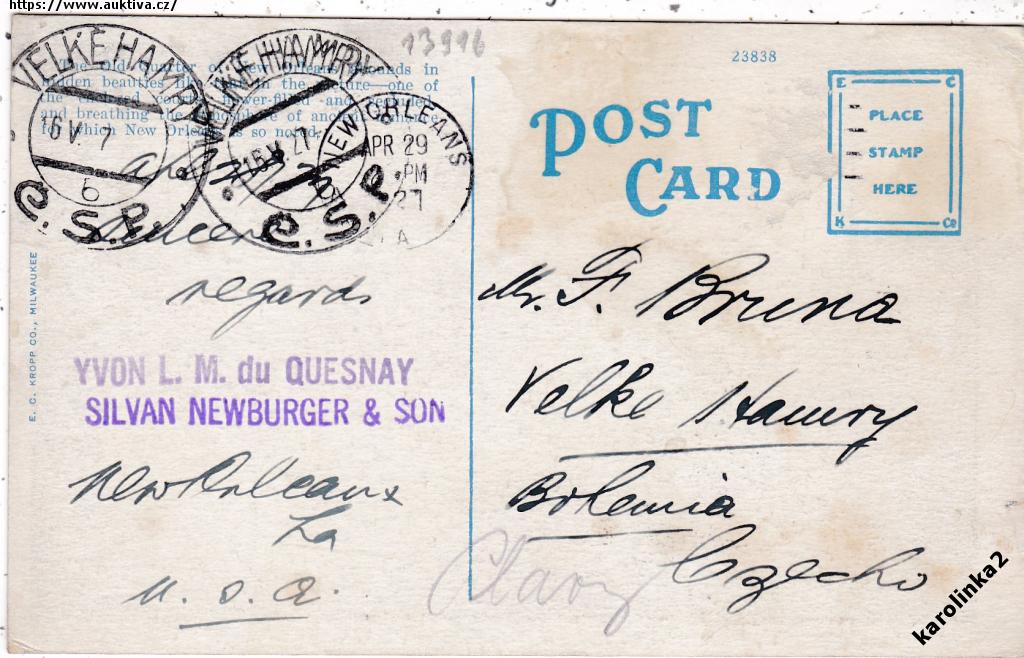 https://www.auktiva.cz/
13916
23838
The Old Quarter of New Orleans abounds in
hidden beauties like that in the picture—one of
the courts, flower-filled and secluded,
and breathing the atmosphere of ancient
for which New Orleans is so noted.
VELKÉ HAMRY
16 V. 7
6
Č.S.P.
VELKÉ HAMRY
16 V. 27
6
Č.S.P.
NEW ORLEANS
APR 29
PM
27
LA
POST
CARD
E C
PLACE
STAMP
HERE
K Co
Sincere
regards
YVON L. M. du QUESNAY
SILVAN NEWBURGER & SON
New Orleans
La
U. S. A.
Mr. F. Bruna
Velke Hamry
Bohemia
Czecho
E. C. KROPP CO., MILWAUKEE
karolinka2